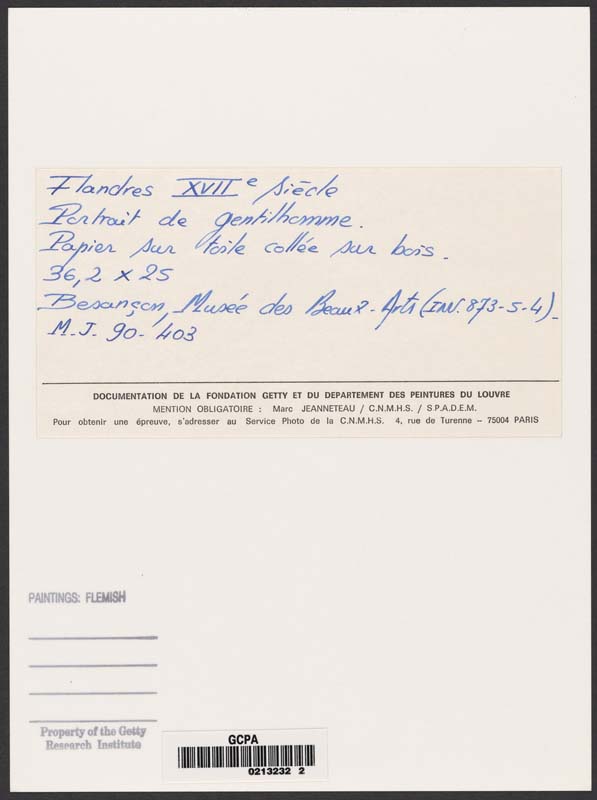 Flandres XVIIe siècle
Portrait de gentilhomme.
Papier sur toile collée sur bois.
36,2 x 25
Besançon, Musée des Beaux-Arts (INV. 873-5-4).
M.J. 90-403
DOCUMENTATION DE LA FONDATION GETTY ET DU DEPARTEMENT DES PEINTURES DU LOUVRE
MENTION OBLIGATOIRE : Marc JEANNETEAU / C.N.M.H.S. / S.P.A.D.E.M.
Pour obtenir une épreuve, s'adresser au Service Photo de la C.N.M.H.S. 4, rue de Turenne – 75004 PARIS
PAINTINGS: FLEMISH
Property of the Getty
Research Institute
GCPA
0213232 2